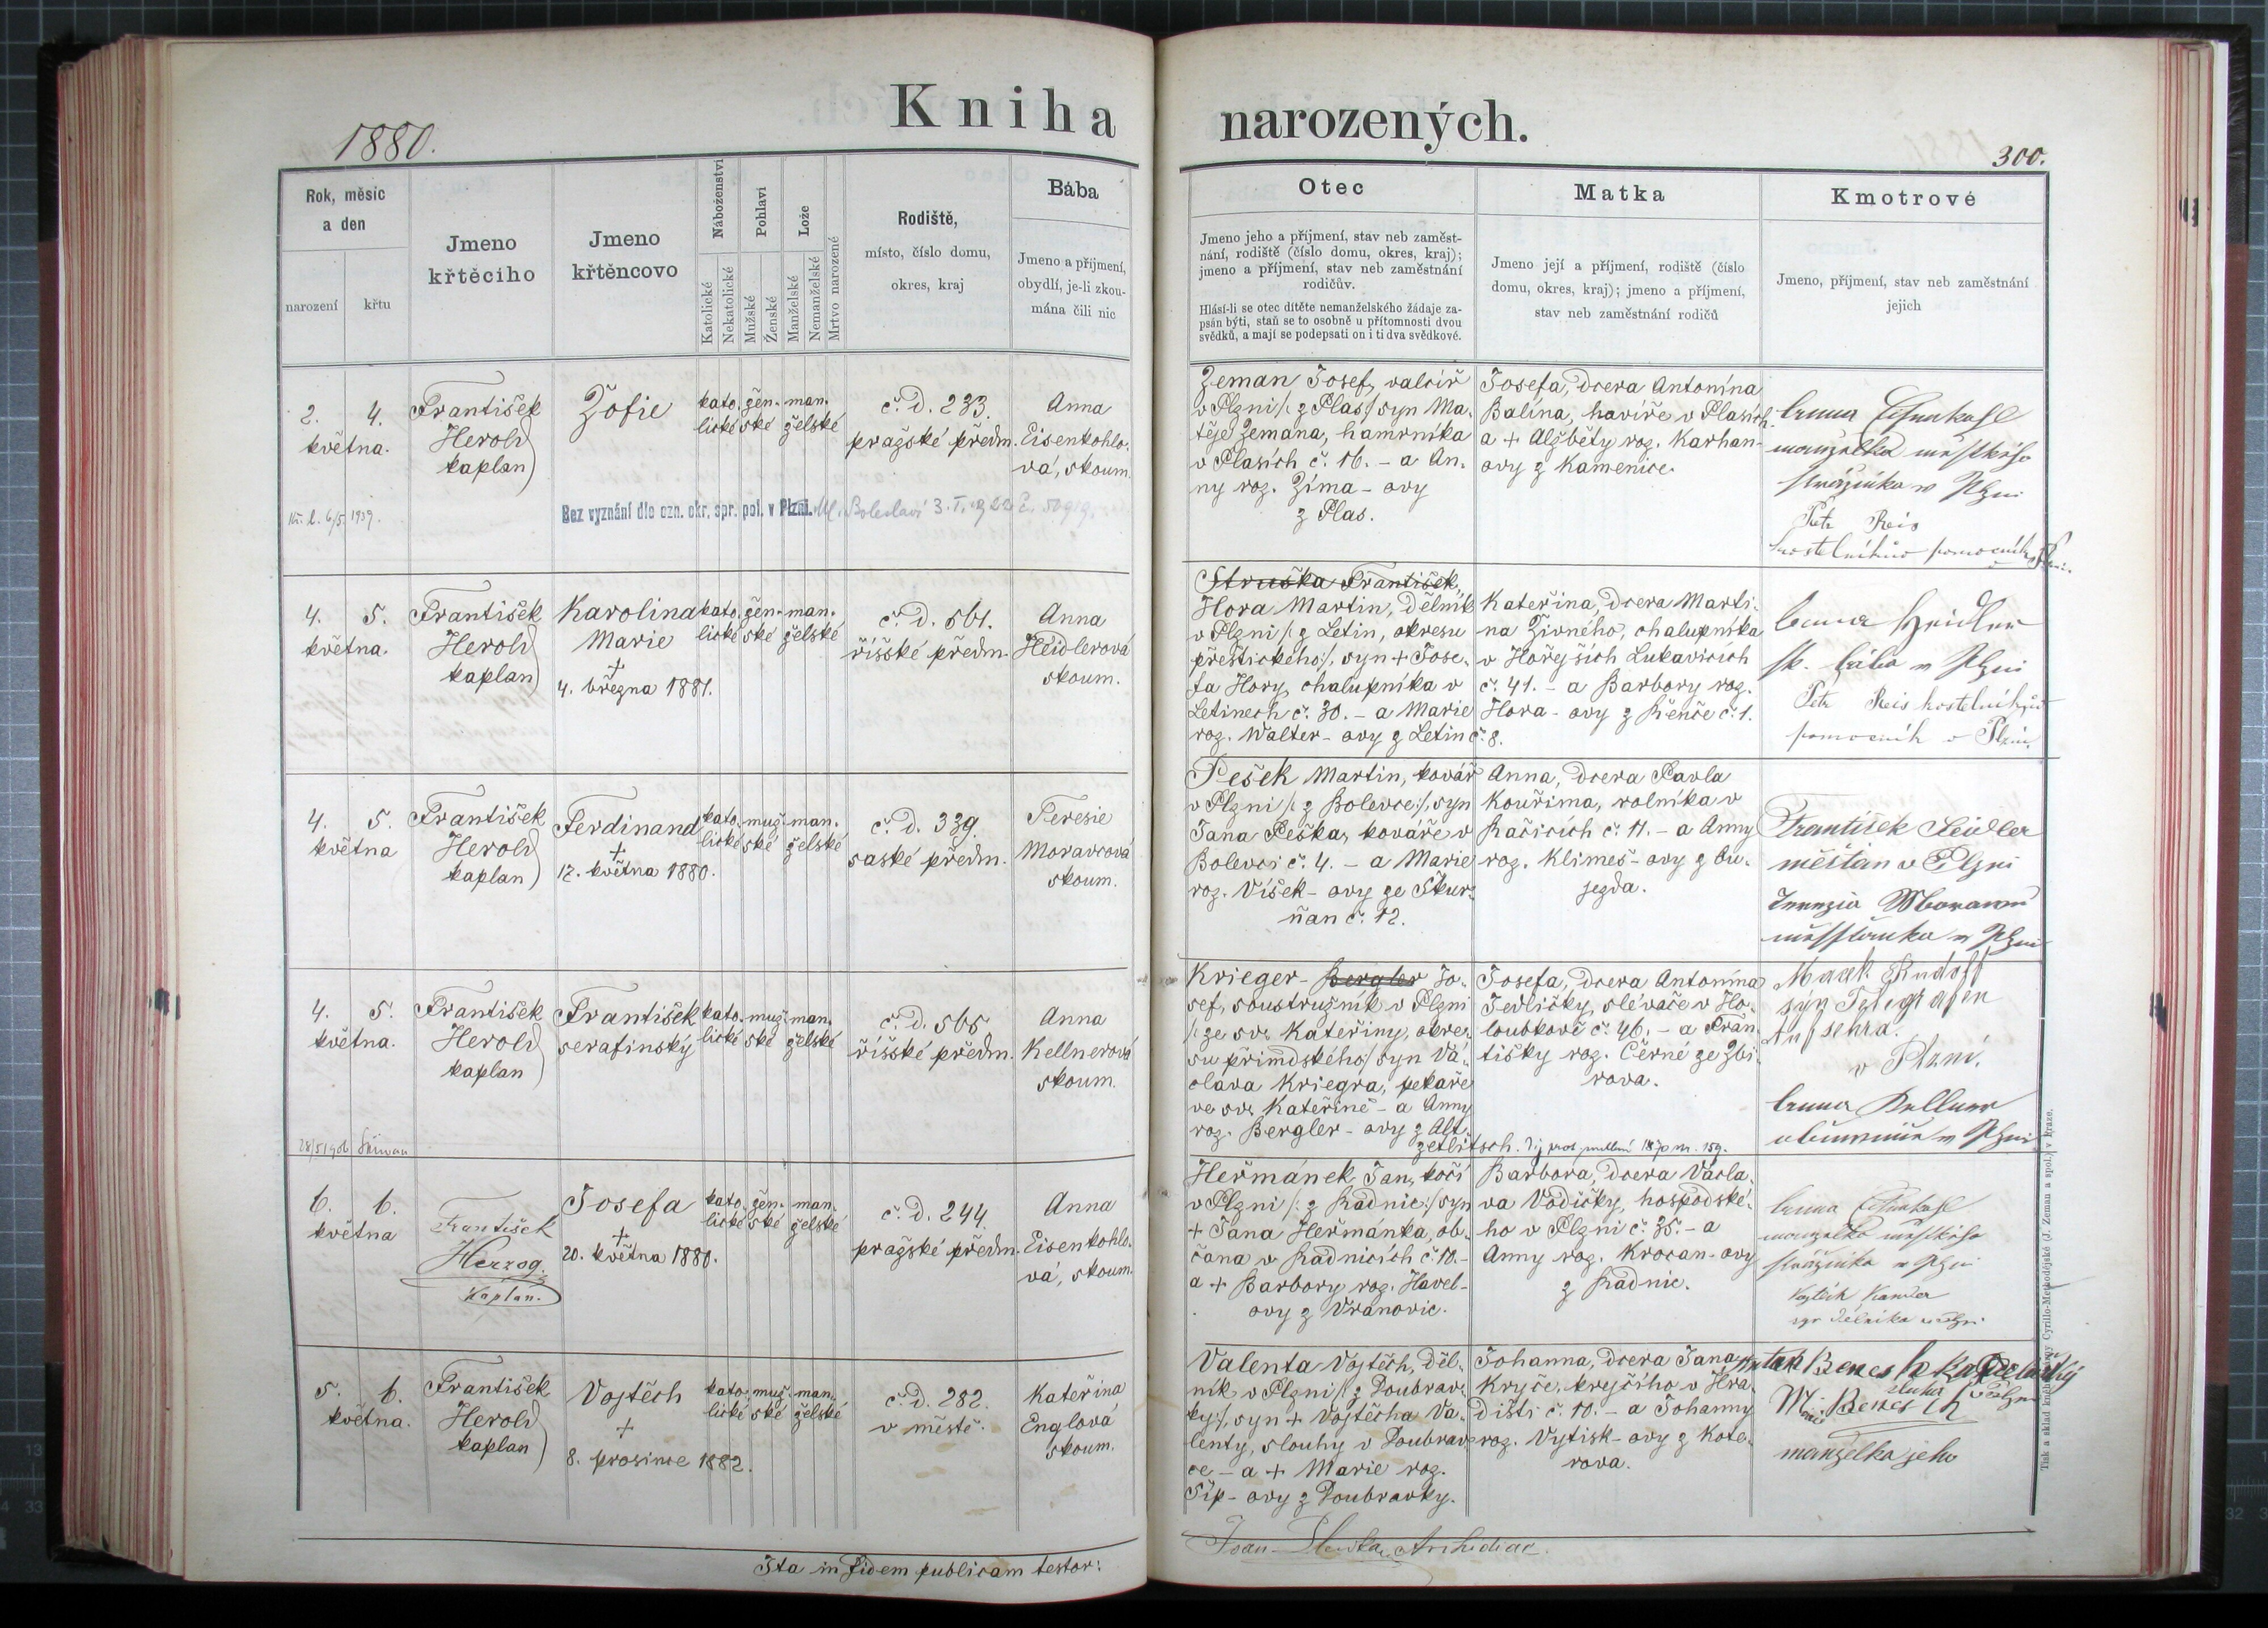 Kniha narozených.
1880.
300.
Rok, měsíc
a den
narození
křtu
Jmeno
křtěcího
Jmeno
křtěncovo
Náboženství
Katolické
Nekatolické
Pohlaví
Mužské
Ženské
Lože
Manželské
Nemanželské
Mrtvo narozené
Rodiště,
místo, číslo domu,
okres, kraj
Bába
Jmeno a příjmení,
obydlí, je-li zkou-
mána čili nic
Otec
Jmeno jeho a příjmení, stav neb zaměst-
nání, rodiště (číslo domu, okres, kraj);
jmeno a příjmení, stav neb zaměstnání
rodičův.
Hlásí-li se otec dítěte nemanželského žádaje za-
psán býti, staň se to osobně u přítomnosti dvou
svědků, a mají se podepsati on i ti dva svědkové.
Matka
Jmeno její a příjmení, rodiště (číslo
domu, okres, kraj); jmeno a příjmení,
stav neb zaměstnání rodičů
Kmotrové
Jmeno, příjmení, stav neb zaměstnání
jejich
2. 4.
května.
František
Herold
kaplan
Žofie
kato-
lické
žen-
ské
man-
želské
č. d. 233.
pražské předm.
Anna
Eisenkohlo-
vá, skoum.
6/5. 1939.
Bez vyznání dle ozn. okr. spr. pol. v Plzni.
Ml. Boleslavi 3. I.
Zeman Josef, valcíř
v Plzni /: z Plas/ syn Ma-
těje Zemana, hamrníka
v Plasích č. 16. - a An-
ny roz. Zíma - ovy
z Plas.
Josefa, dcera Antonína
Balína, havíře v Plasích
a + Alžběty roz. Karhan-
ovy z Kamenice.
Anna Eisenkohl
manzelka městkého
strážníka v Plzni
Petr Reis
kostelníkův pomocník
4. 5.
května.
František
Herold
kaplan
Karolina
Marie
+
4. března 1881.
kato-
lické
žen-
ské
man-
želské
č. d. 561.
říšské předm.
Anna
Heidlerová
skoum.
Struska František,
Hora Martin, dělník
v Plzni /: z Letin, okresu
přeštického:/, syn + Jose-
fa Hory, chalupníka v
Letinech č. 30. - a Marie
roz. Walter - ovy z Letin č. 8.
Kateřina, dcera Marti-
na Živného, chalupníka
v Hořejších Lukavicích
č. 41. - a Barbory roz.
Hora - ovy z Řenče č. 1.
Anna Heidler
sk. bába v Plzni
Petr Reis kostelníkův
pomocník v Plzni
4. 5.
května
František
Herold
kaplan
Ferdinand
+
12. května 1880.
kato-
lické
muž-
ské
man-
želské
č. d. 339.
saské předm.
Teresie
Moravcová
skoum.
Pešek Martin, kovář
v Plzni /: z Bolevce:/, syn
Jana Peška, kováře v
Bolevci č. 4. - a Marie
roz. Víšek - ovy ze Škur-
ňan č. 12.
Anna, dcera Pavla
Kouřima, rolníka v
Račicích č. 11. - a Anny
roz. Klimeš - ovy z Ou-
jezda.
František Seidler
měšťan v Plzni
4. 5.
května.
František
Herold
kaplan
František
serafinský
kato-
lické
muž-
ské
man-
želské
č. d. 565
říšské předm.
Anna
Kellnerová
skoum.
Krieger - Bergler Jo-
sef, soustružník v Plzni
/: ze sv. Kateřiny, okre-
su přimdského/ syn Vá-
clava Kriegra, pekaře
ve sv. Kateřině - a Anny
roz. Bergler - ovy z Alt-
zetlitsch.
Josefa, dcera Antonína
Jedličky, slévače v Ho-
loubkově č. 46. - a Fran-
tišky roz. Černé ze Zbi-
rova.
Marek Rudolf
syn Telegrafen
Aufsehra.
v Plzni.
Anna Kellner
6. 6.
května
František
Herzog.
Kaplan.
Josefa
+
20. května 1880.
kato-
lické
žen-
ské
man-
želské
č. d. 244.
pražské předm.
Anna
Eisenkohlo-
vá, skoum.
Heřmánek Jan, kočí
v Plzni /: z Radnic:/ syn
+ Jana Heřmánka, ob-
čana v Radnicích č. 10. -
a + Barbory roz. Havel-
ovy z Vranovic.
Barbora, dcera Václa-
va Vodičky, hospodské-
ho v Plzni č. 35. - a
Anny roz. Krocan - ovy
z Radnic.
Anna Eisenkohl
manzelka městkého
strážníka v Plzni
5. 6.
května.
František
Herold
kaplan
Vojtěch
+
8. prosince 1882.
kato-
lické
muž-
ské
man-
želské
č. d. 282.
v městě.
Kateřina
Englová
skoum.
Valenta Vojtěch, děl-
ník v Plzni /: z Doubrav-
ky:/, syn + Vojtěcha Va-
lenty, slouhy v Doubrav-
ce - a + Marie roz.
Šíp - ovy z Doubravky.
Johanna, dcera Jana
Kryče, krejčího v Hra-
dišti č. 10. - a Johanny
roz. Vytisk - ovy z Kote-
rova.
manželka jeho
Ita in fidem publicam testor:
Archidiac.